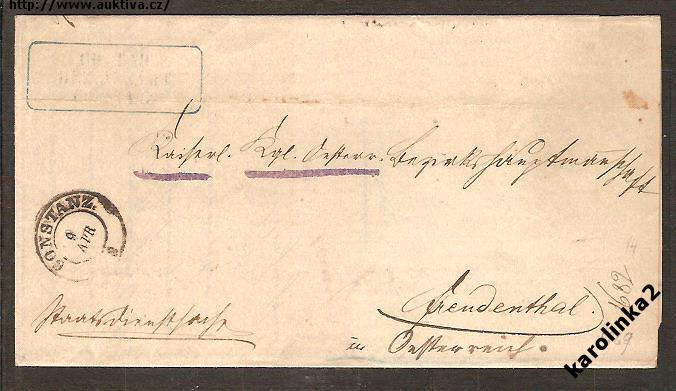 http://www.auktiva.cz/
Kaiserl. Kgl. Oesterr. Bezirkshauptmannschaft
CONSTANZ.
9
APR
Freudenthal.
Staatsdienstsache
in Oesterreich.
1682
karolinka2